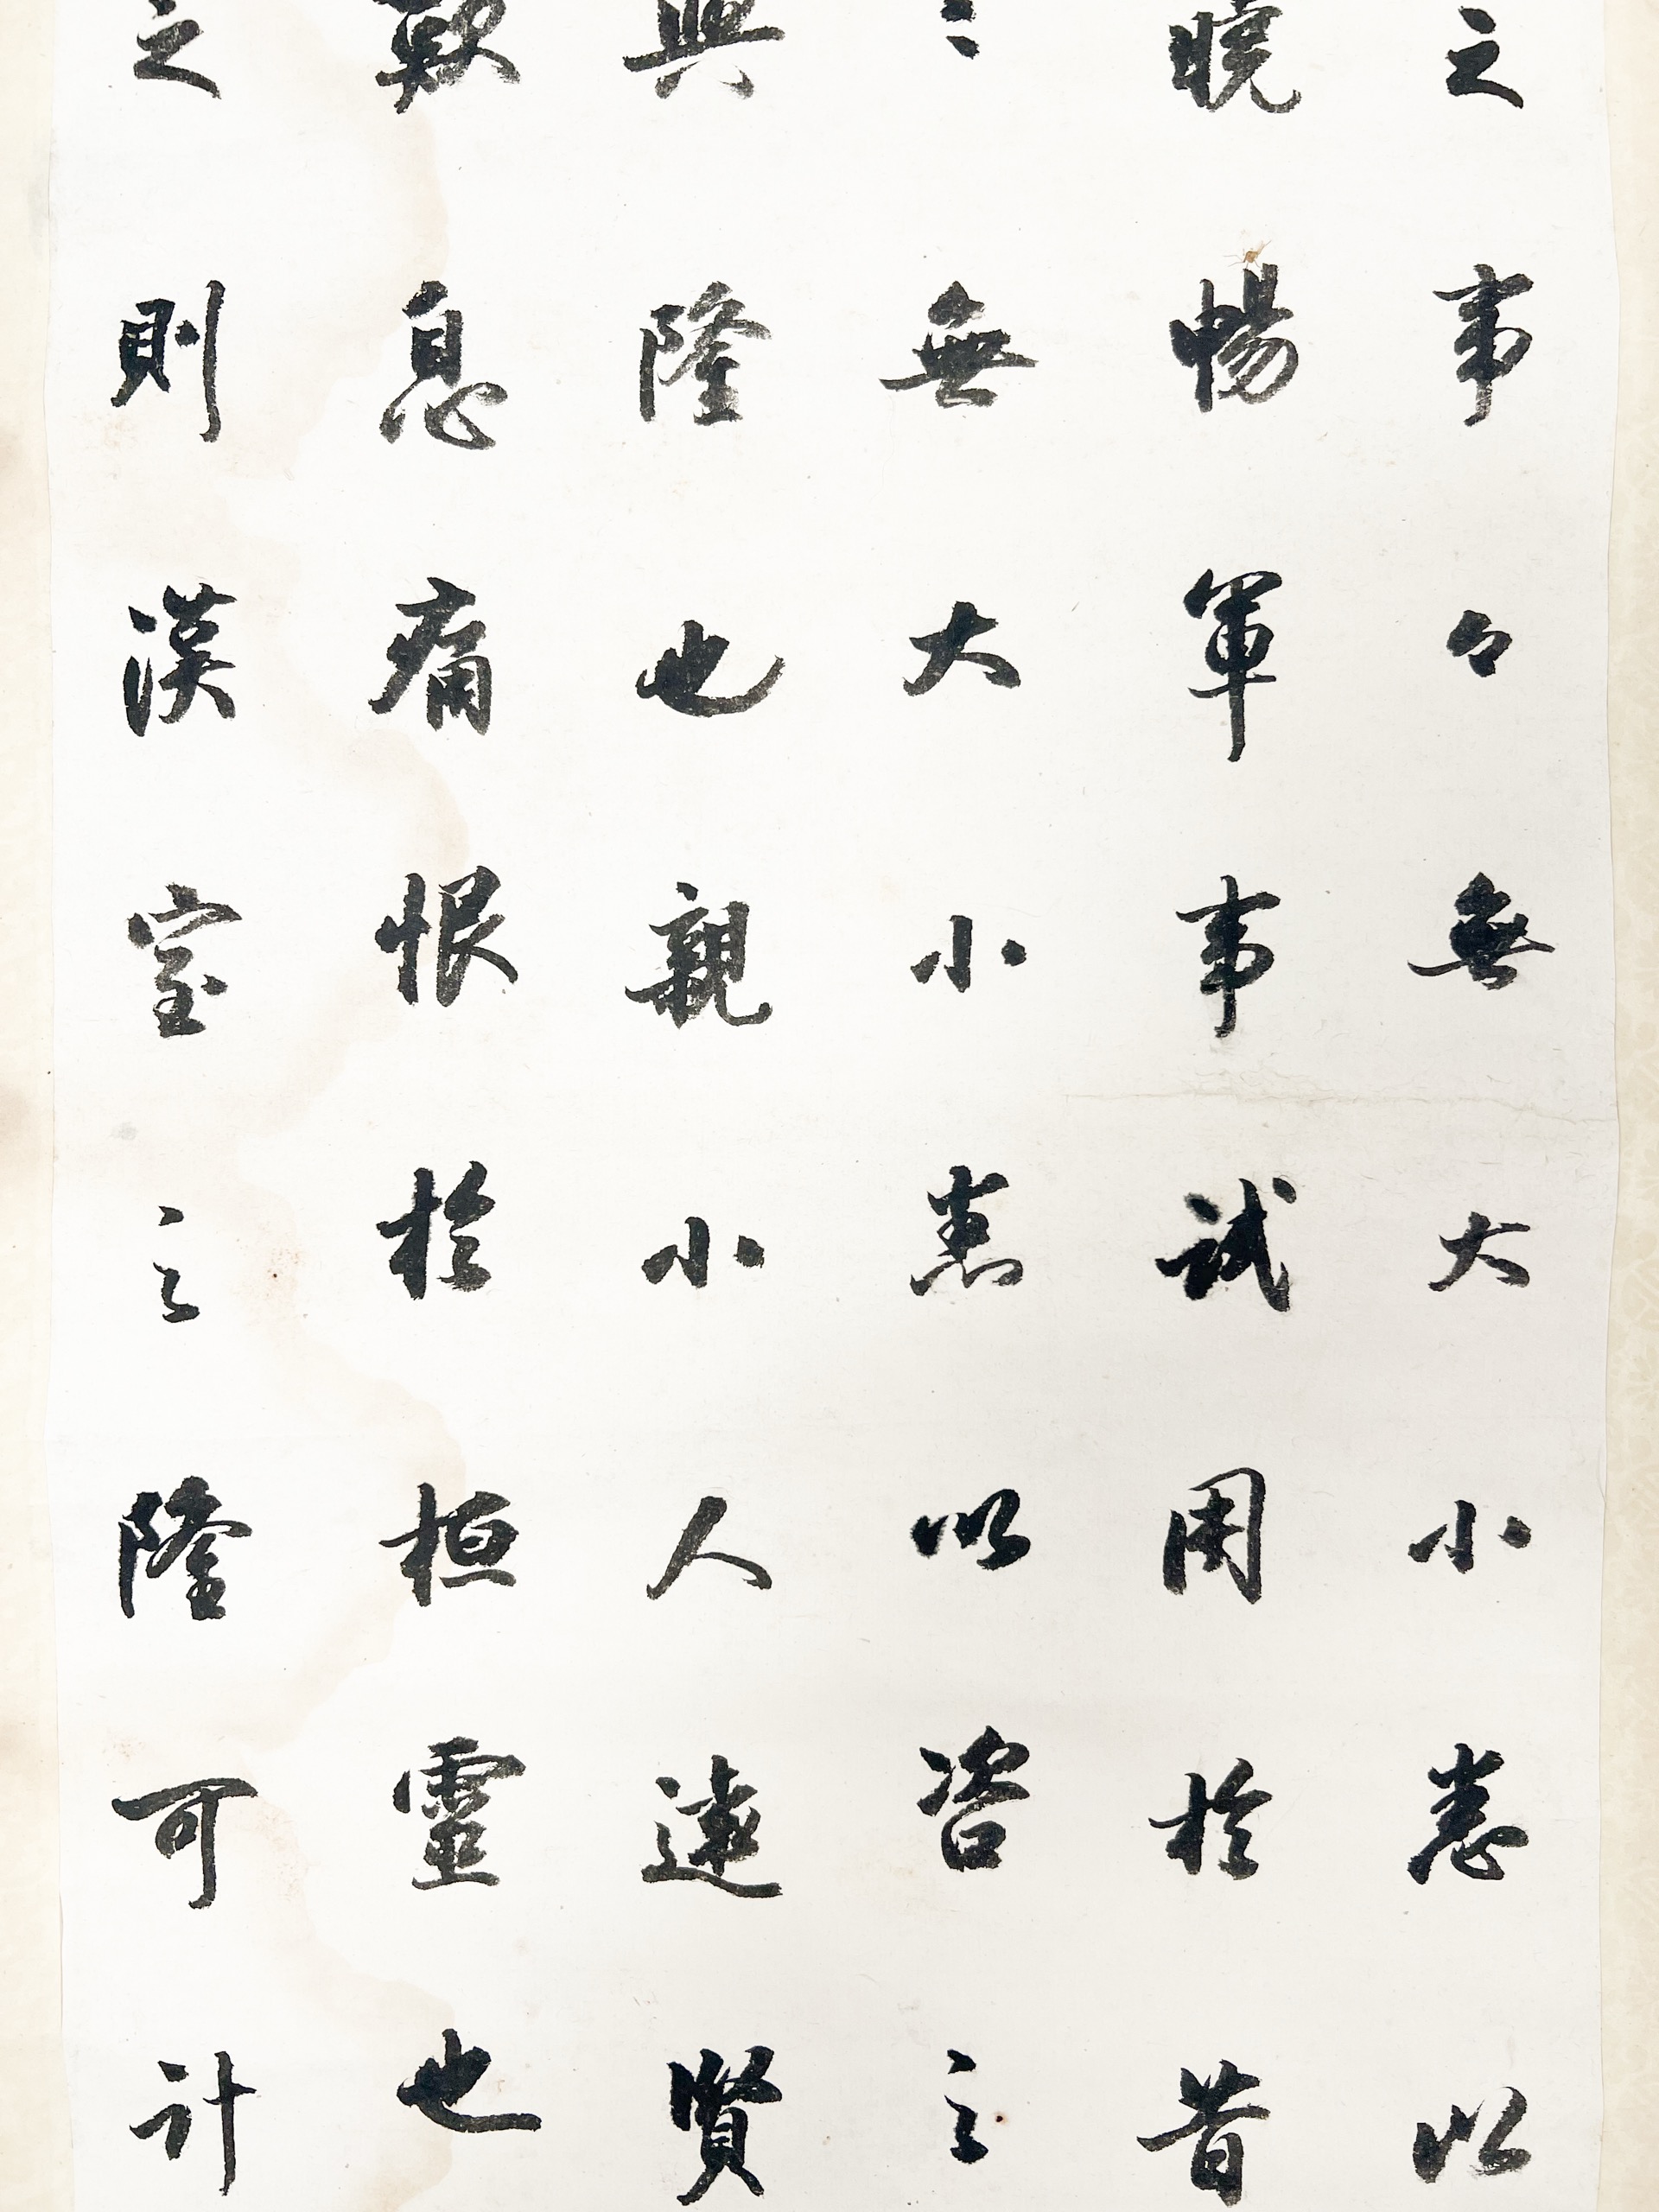 之事々無大小悉以
曉暢軍事試用於昔
無大小悉以咨之
興隆也親小人遠賢
歎息痛恨於桓靈也
之則漢室之隆可計